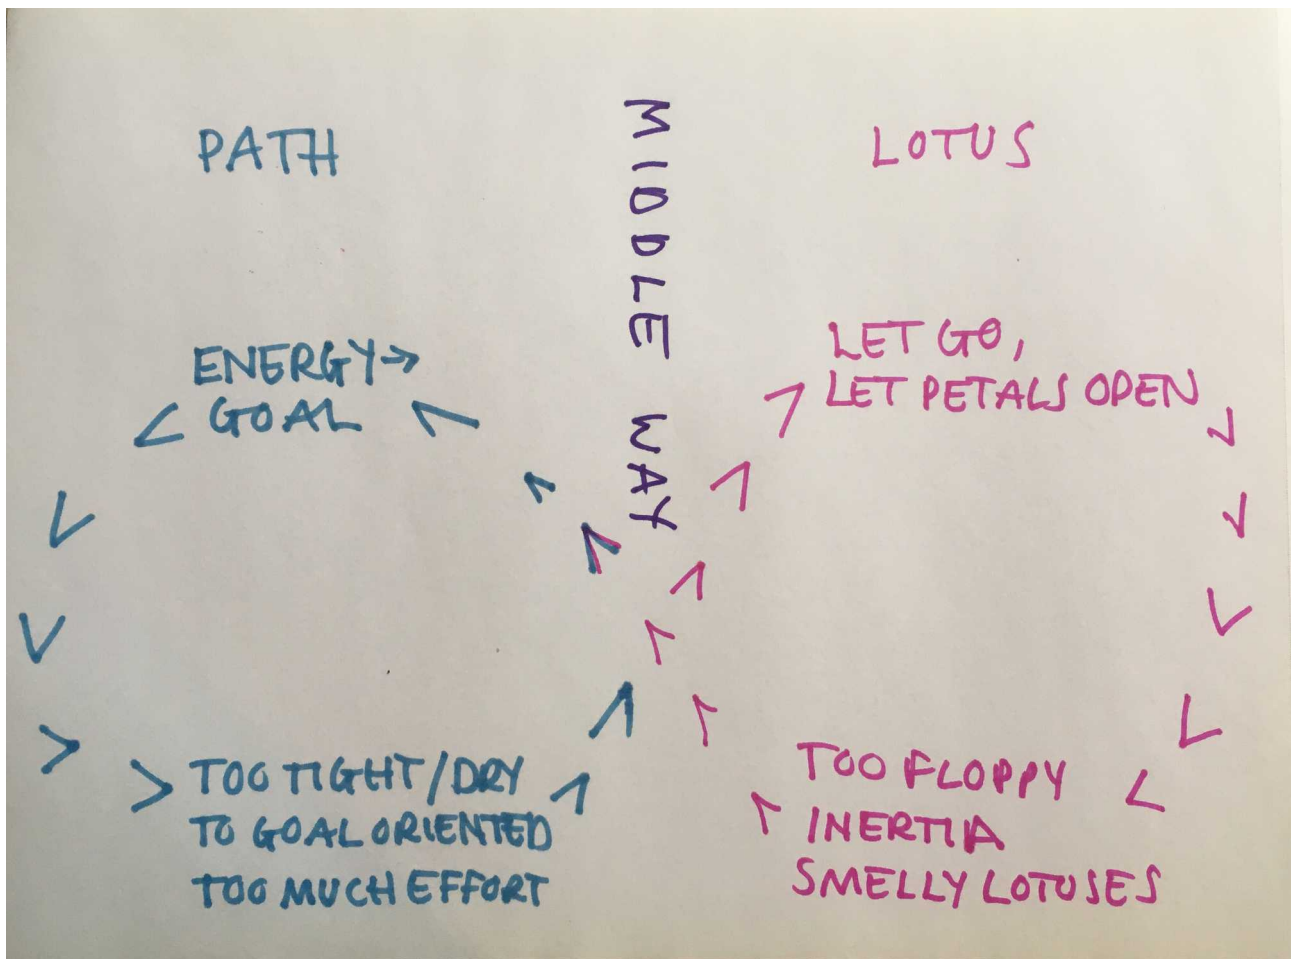 PATH
MIDDLE WAY
LOTUS
ENERGY→
GOAL
LET GO,
LET PETALS OPEN
TOO TIGHT/DRY
TO GOAL ORIENTED
TOO MUCH EFFORT
TOO FLOPPY
INERTIA
SMELLY LOTUSES